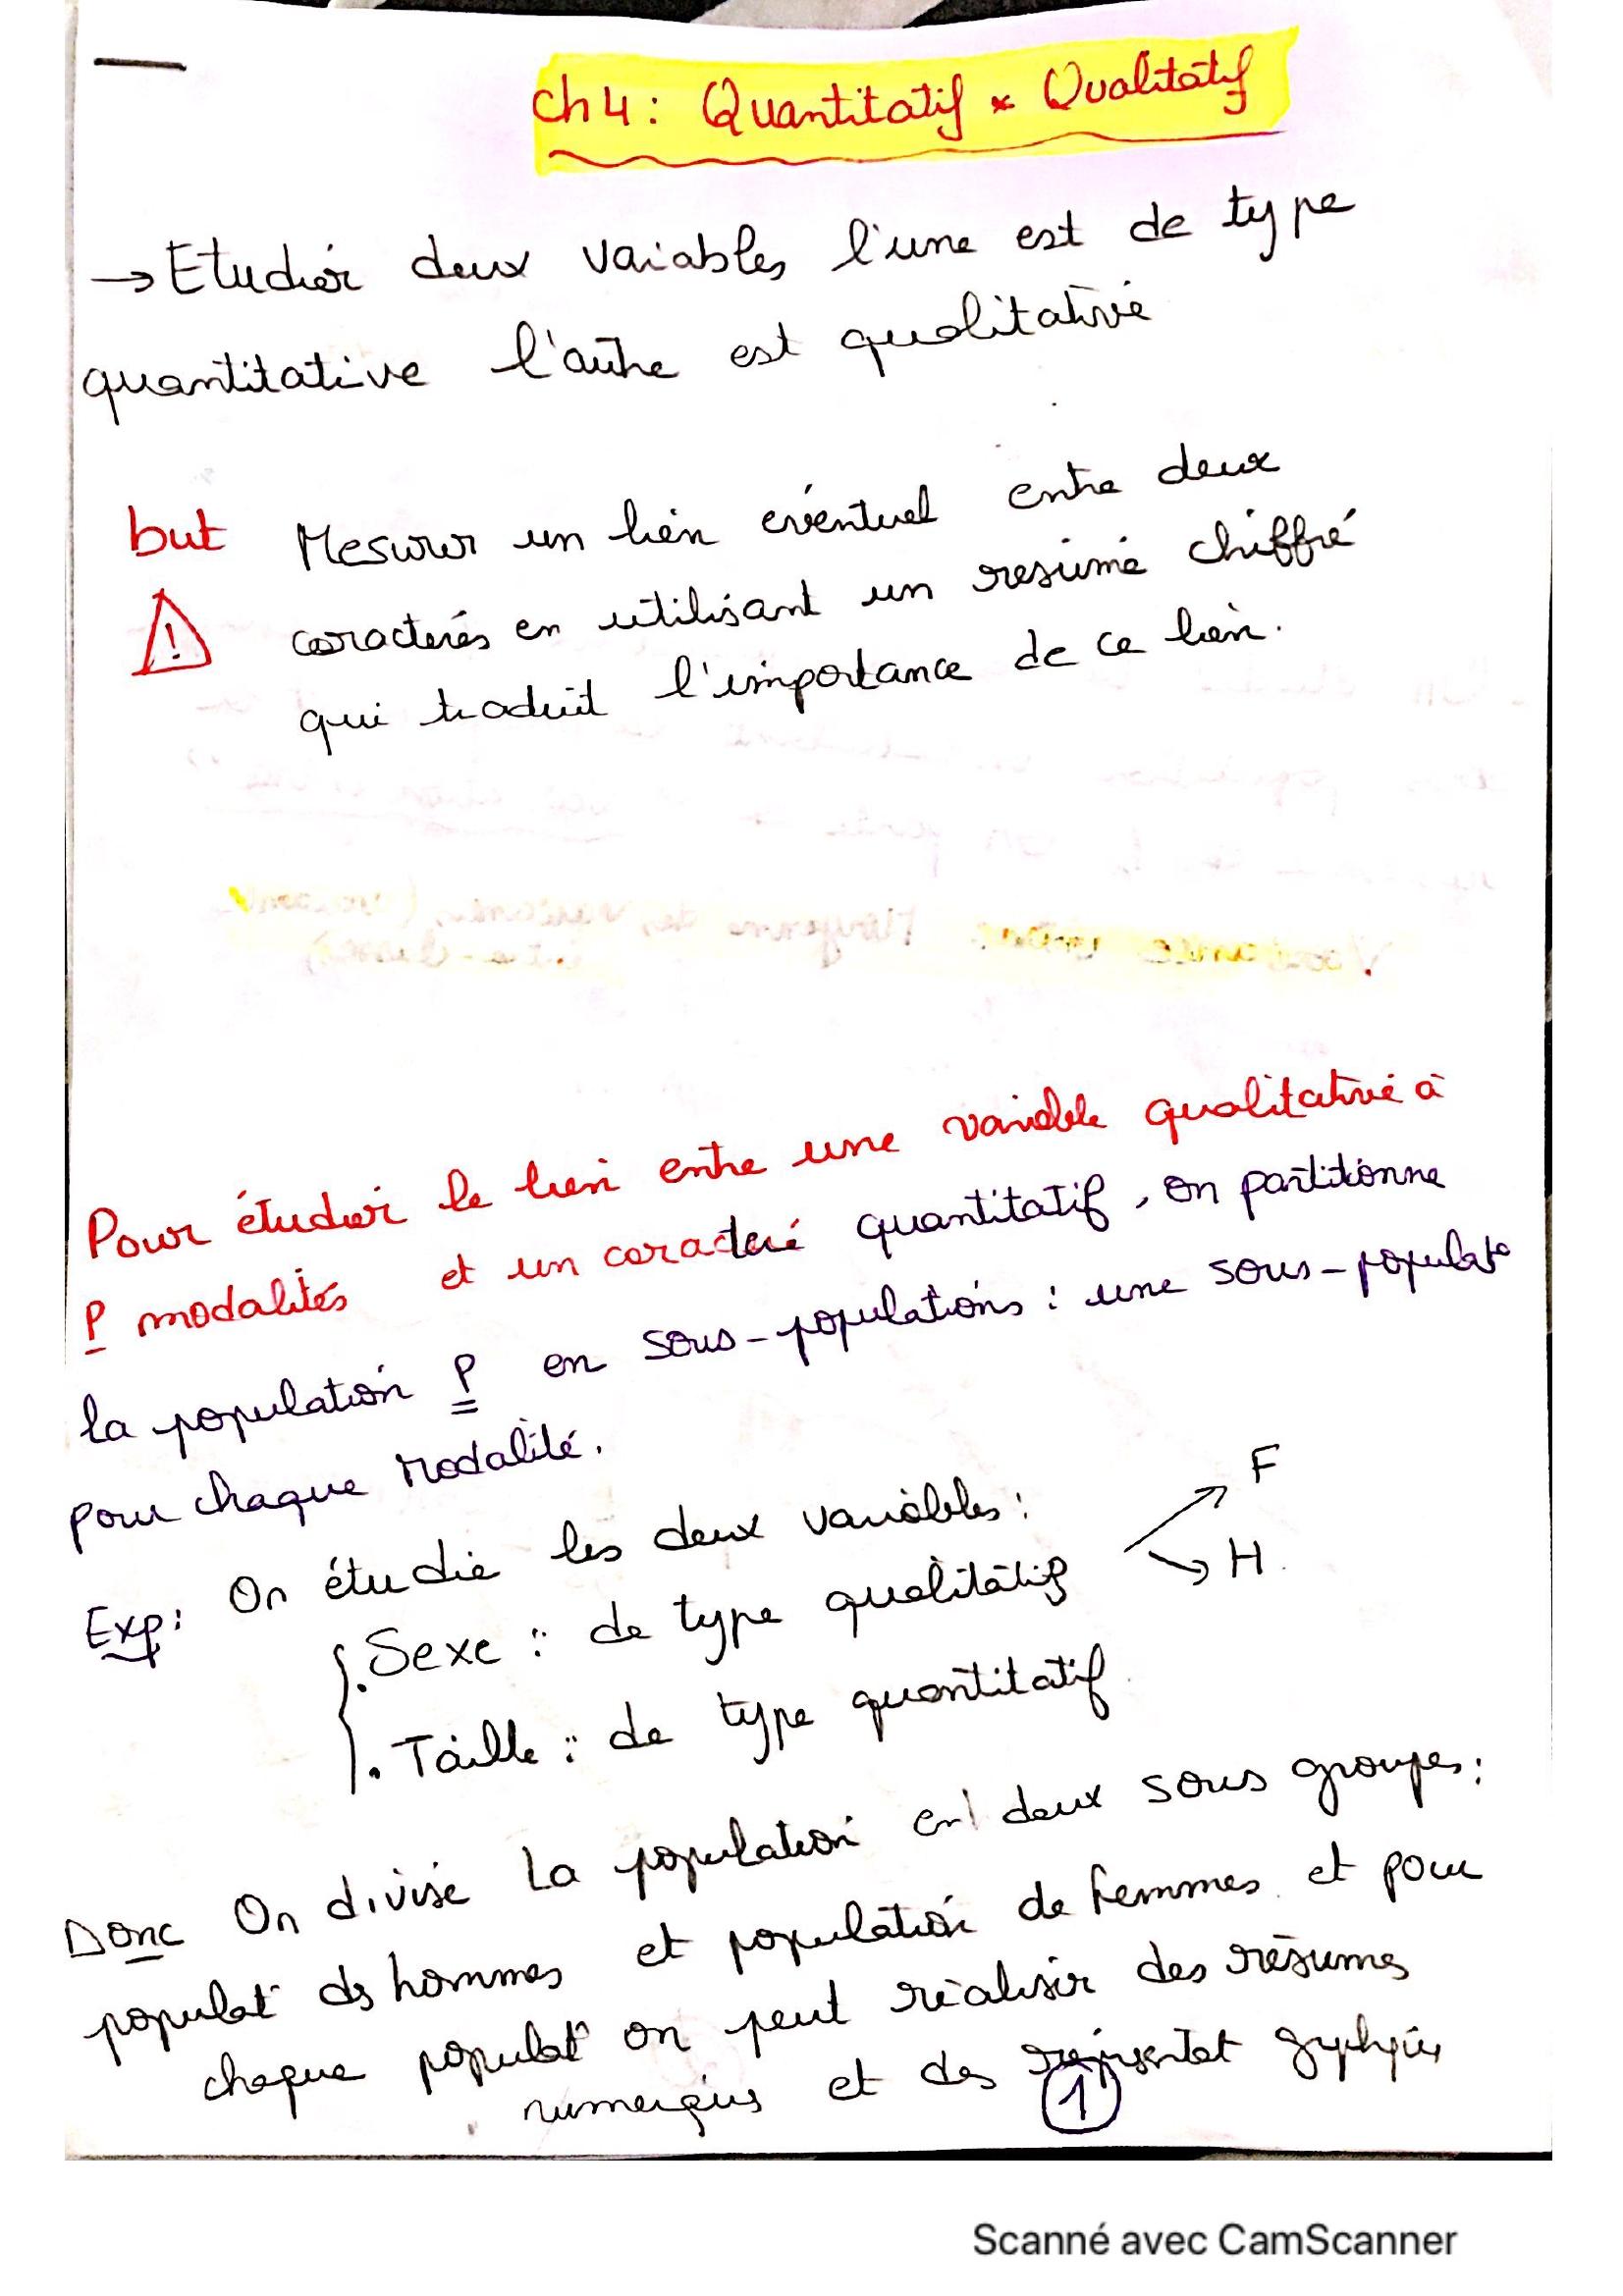 ch 4 : Quantitatif * Qualitatif
→ Etudier deux vaiables l'une est de type
quantitative l'autre est qualitative
but Mesurer un lien eventuel entre deux
caracteres en utilisant un resumé chiffré
qui traduit l'importance de ce lien.
Pour étudier le lien entre une variable qualitative à
P modalités et un caractere quantitatif, on partitionne
la population P en sous-populations : une sous-populat°
pour chaque Modalité.
Exp: On étudie les deux variables :
F
H
. Sexe : de type qualitatif
. Taille : de type quantitatif
Donc On divise La population en deux sous groupes :
populat° ds hommes et population de femmes et pour
chaque populat° on peut réaliser des résumes
numeriques et des représentat graphiques
1
Scanné avec CamScanner